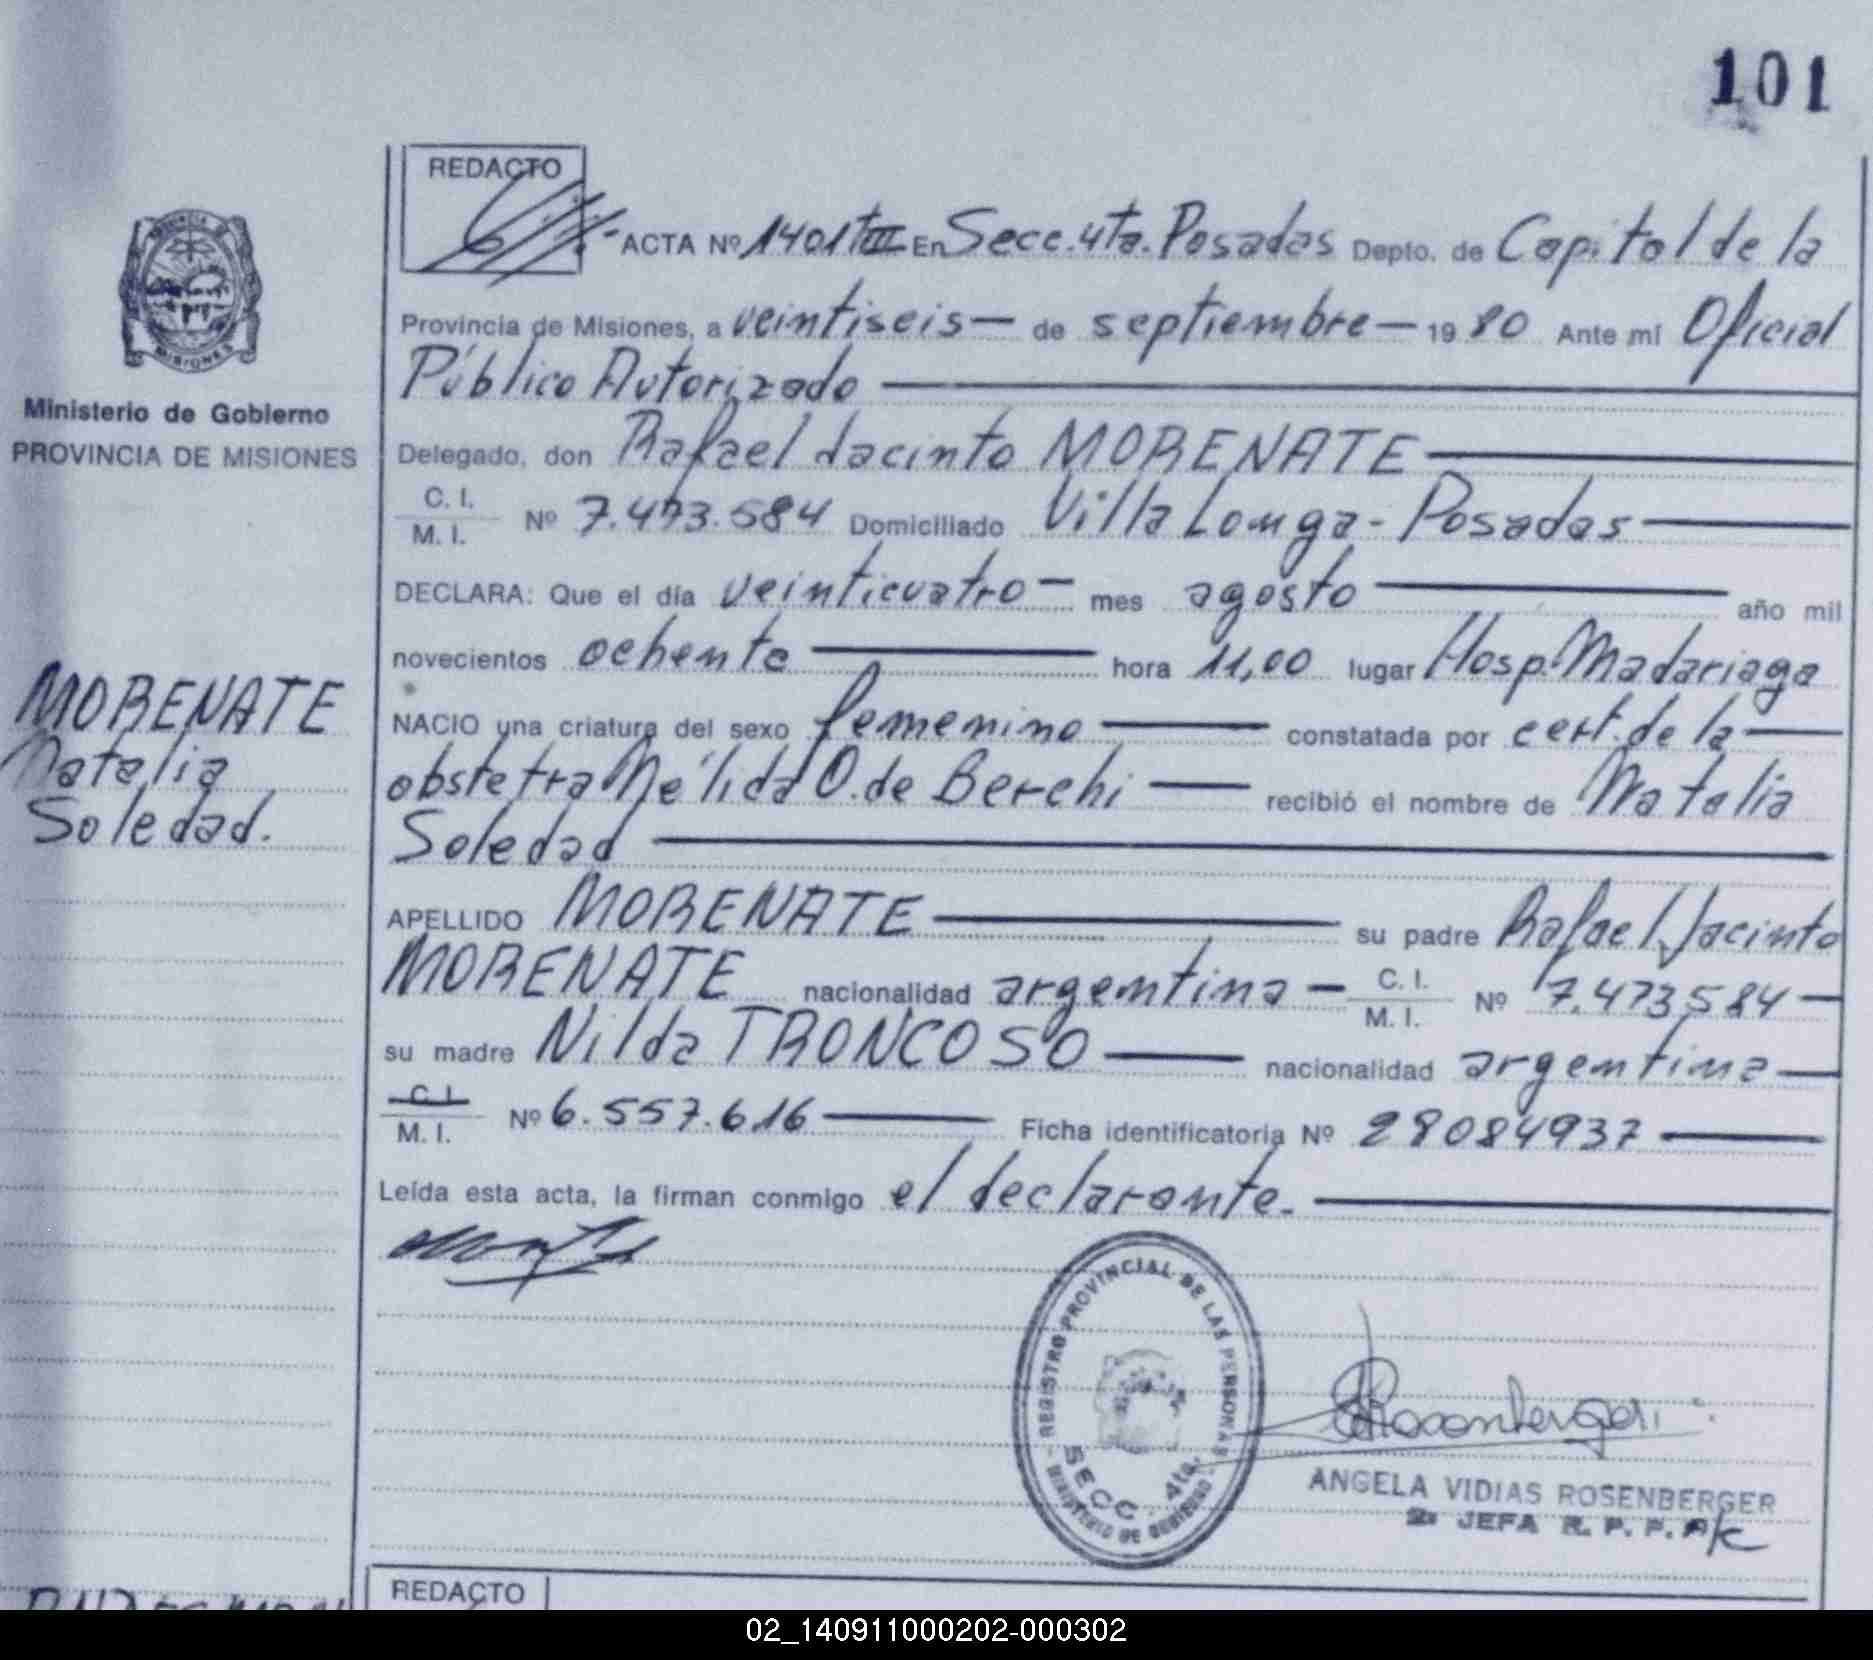 101
REDACTO
ACTA Nº 1401 tº III En Secc. 4ta. Posadas Depto. de Capital de la
Provincia de Misiones, a veintiseis — de septiembre — 1980 Ante mí Oficial
Público Autorizado
Ministerio de Gobierno
PROVINCIA DE MISIONES
Delegado, don Rafael Jacinto MORENATE
C. I.
M. I. Nº 7.473.584 Domiciliado Villa Longa - Posadas
DECLARA: Que el día veinticuatro — mes agosto año mil
novecientos ochenta hora 11,00 lugar Hosp. Madariaga
MORENATE
Natalia
Soledad.
NACIO una criatura del sexo femenino constatada por cert. de la
obstetra Nélida O. de Berchi recibió el nombre de Natalia
Soledad
APELLIDO MORENATE su padre Rafael Jacinto
MORENATE nacionalidad argentina — C. I. M. I. Nº 7.473584
su madre Nilda TRONCOSO nacionalidad argentina
C. I.
M. I. Nº 6.557.616 Ficha identificatoria Nº 28084937
Leída esta acta, la firman conmigo el declarante.
REGISTRO PROVINCIAL DE LAS PERSONAS
MINISTERIO DE GOBIERNO
SECC. 4ta.
ANGELA VIDIAS ROSENBERGER
2ª JEFA R. P. P. A/C
REDACTO
02_140911000202-000302